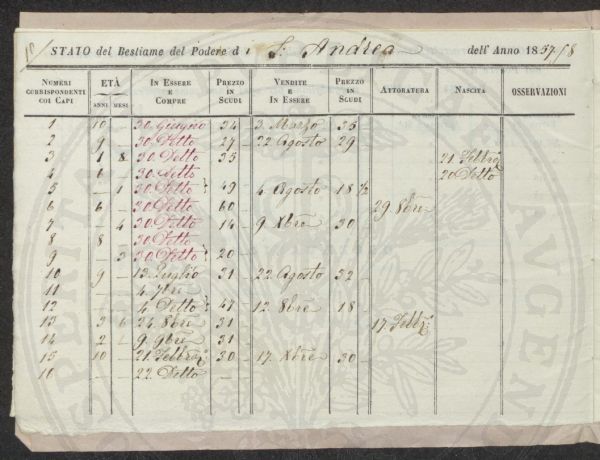 STATO del Bestiame del Podere d i S. Andrea dell' Anno 1857/58
NUMERI CORRISPONDENTI COI CAPI ETÀ ANNI MESI IN ESSERE E COMPRE PREZZO IN SCUDI VENDITE E IN ESSERE PREZZO IN SCUDI ATTORATURA NASCITA OSSERVAZIONI
1 10 - 30. Giugno 34 - 3. Marzo 35
2 9 - 30. Detto 27 - 22. Agosto 29
3 1 8 30. Detto 35 21. Febbrj
4 6 - 30. Detto 20 Detto
5 - 1 30. Detto } 49 4. Agosto 18 ½
6 6 - 30. Detto 60 29. 8bre
7 - 4 30. Detto 14 - 9. Xbre 30
8 8 - 30. Detto
9 - 3 30. Detto } 20
10 9 - 13. Luglio 31 - 22. Agosto 32
11 - - 4. 7bre
12 - - 4. Detto } 47 - 12. 8bre 18
13 3 6 24. 8bre 31 17. Febbrj
14 2 - 9. 9bre 31
15 10 - 21. Febbrj 30 - 17. Xbre 30
16 - 22. Detto -